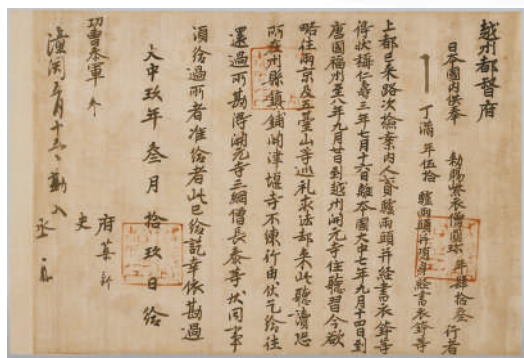 越州都督府
日本國内供奉 勅賜紫衣僧圓珍 年肆拾叁 行者
丁滿 年伍拾 驢兩頭并隨身經書衣鉢等
上都已來路次檢案内人貳驢兩頭并經書衣鉢等
得狀稱仁壽三年七月十六日離本國大中七年九月十四日到
唐國福州至八年九月廿日到越州開元寺住聽習今欲
略往兩京及五臺山等巡礼求法却來此聽讀恐
所在州縣鎮鋪開津堰寺不練行由伏乞給往
還過所勘得開元寺三綱僧長泰等狀同事
須給過所者准給者此已給訖幸依勘過
大中玖年叁月拾玖日給
府葉新
功曹叅軍
史
潼關五月十五日勘入 丞